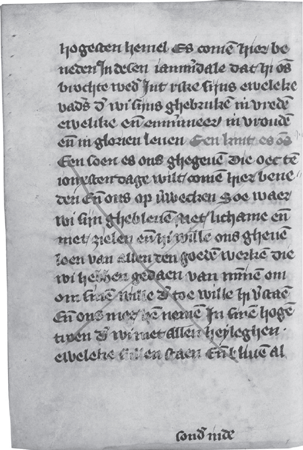 hogesten hemel Es comē hier be
neden In desen iammdale dat hi ōs
brochte wed̄ Int rike sijns eweleke
vad̄s d̄ wi sijns ghebruken in vreden
ewelike en̄ emmmeer in vrouden
en̄ in glorien leuen Een kint es ōs
Een soen es ons ghegeuē die oec tē
ioncsten dage wilt comē hier bene
den En̄ ons op v̄wecken Soe waer
wi sijn ghebleuē Met lichame en̄
met zielen en̄ wille ons gheuē
loen van allen den goedē werkē die
wi hebben gedaen van
om sinē wille d̄ toe wille hi
En̄ ons mede nemē In sine hogē
d̄ wi met allen heyleghen
eweleke sullen staen En̄ bliuē al
sond̄ inde